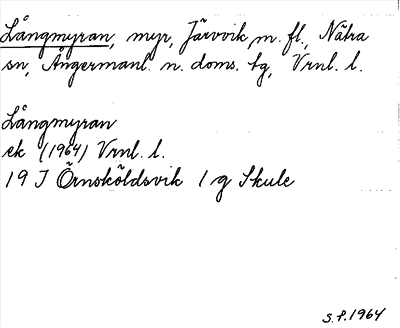 Långmyran, myr, Järvvik m. fl., Nätra
sn, Ångermanl. n. doms. tg, Vrnl. l.
Långmyran
ek (1964) Vrnl. l.
19 I Örnsköldsvik 1 g Skule
S.P. 1964